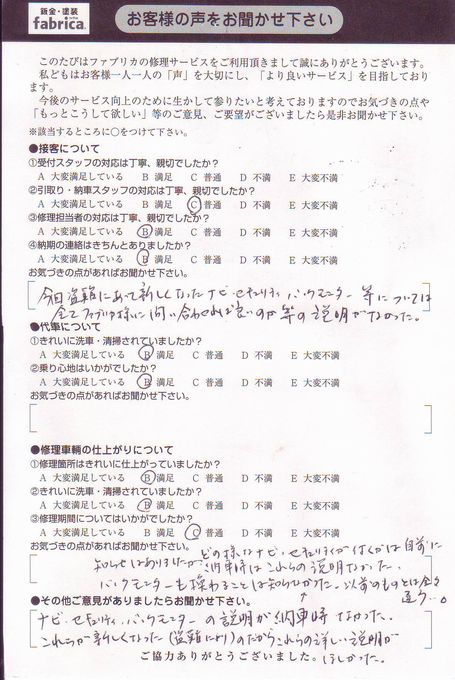 鈑金・塗装
fabrica.
お客様の声をお聞かせ下さい
このたびはファブリカの修理サービスをご利用頂きまして誠にありがとうございます。
私どもはお客様一人一人の「声」を大切にし、「より良いサービス」を目指しており
ます。
今後のサービス向上のために生かして参りたいと考えておりますのでお気づきの点や
「もっとこうして欲しい」等のご意見、ご要望がございましたら是非お聞かせ下さい。
※該当するところに○をつけて下さい。
●接客について
①受付スタッフの対応は丁寧、親切でしたか?
A 大変満足している B 満足 C 普通 D 不満 E 大変不満
②引取り・納車スタッフの対応は丁寧、親切でしたか?
A 大変満足している B 満足 C 普通 D 不満 E 大変不満
③修理担当者の対応は丁寧、親切でしたか?
A 大変満足している B 満足 C 普通 D 不満 E 大変不満
④納期の連絡はきちんとありましたか?
A 大変満足している B 満足 C 普通 D 不満 E 大変不満
お気づきの点があればお聞かせ下さい。
今回盗難にあって新しくなったナビ・セキュリティ バックモニター 等については
全てファブリカ様に問い合わせれば良いのか等の説明がなかった。
●代車について
①きれいに洗車・清掃されていましたか?
A 大変満足している B 満足 C 普通 D 不満 E 大変不満
②乗り心地はいかがでしたか?
A 大変満足している B 満足 C 普通 D 不満 E 大変不満
お気づきの点があればお聞かせ下さい。
●修理車輌の仕上がりについて
①修理箇所はきれいに仕上がっていましたか?
A 大変満足している B 満足 C 普通 D 不満 E 大変不満
②きれいに洗車・清掃されていましたか?
A 大変満足している B 満足 C 普通 D 不満 E 大変不満
③修理期間についてはいかがでしたか?
A 大変満足している B 満足 C 普通 D 不満 E 大変不満
お気づきの点があればお聞かせ下さい。
どの様なナビ・セキュリティが付くかは 事前に
知らせはありましたが 納車時はこれらの説明なかった。
バックモニターも換わることは知らなかった。以前のものとは全く
違う…。
●その他ご意見がありましたらお聞かせ下さい。
ナビ・セキュリティ、バックモニターの説明が納車時なかった。
これらが新しくなった(盗難により)のだからこれらの詳しい説明が
ほしかった。
ご協力ありがとうございました。